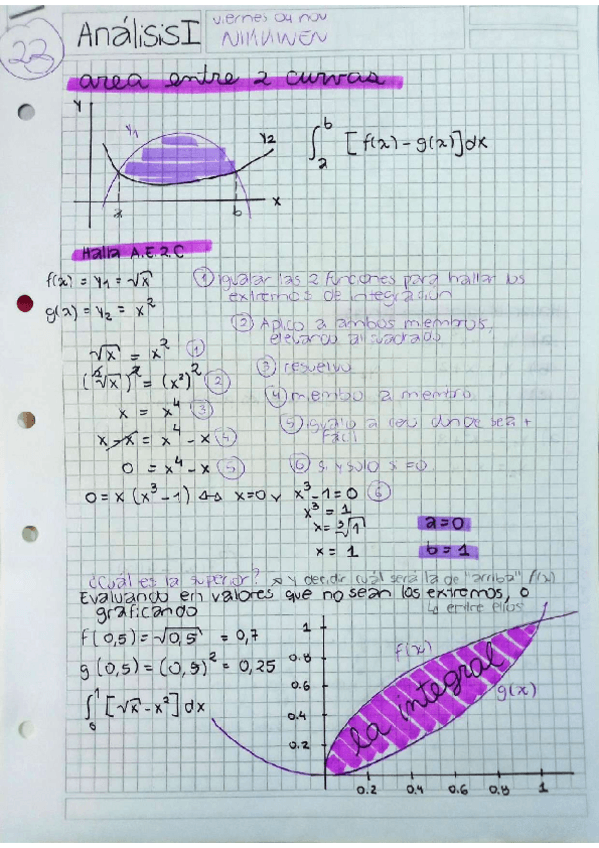 22
Análisis I
viernes 04 nov
area entre 2 curvas
Y
y1
y2
a
b
x
∫ₐᵇ [f(x) - g(x)] dx
Halla A.E.2.C
f(x) = y1 = √x
g(x) = y2 = x²
① igualar las 2 funciones para hallar los
extremos de integración
② Aplico a ambos miembros,
elevando al cuadrado
③ resuelvo
④ miembro a miembro
⑤ igualo a cero donde sea +
fácil
⑥ si y solo si =0
√x = x² ①
(²√x)² = (x²)² ②
x = x⁴ ③
x - x = x⁴ - x ④
0 = x⁴ - x ⑤
0 = x (x³ - 1) ⇔ x=0 y x³ - 1 = 0 ⑥
x³ = 1
x = ³√1
x = 1
a = 0
b = 1
¿Cuál es la superior? → y decidir cuál será la de "arriba" f(x)
Evaluando en valores que no sean los extremos, o
↳ entre ellos
graficando
f(0,5) = √0,5 = 0,7
g(0,5) = (0,5)² = 0,25
∫₀¹ [√x - x²] dx
1
0.8
0.6
0.4
0.2
f(x)
la integral
g(x)
0.2 0.4 0.6 0.8 1